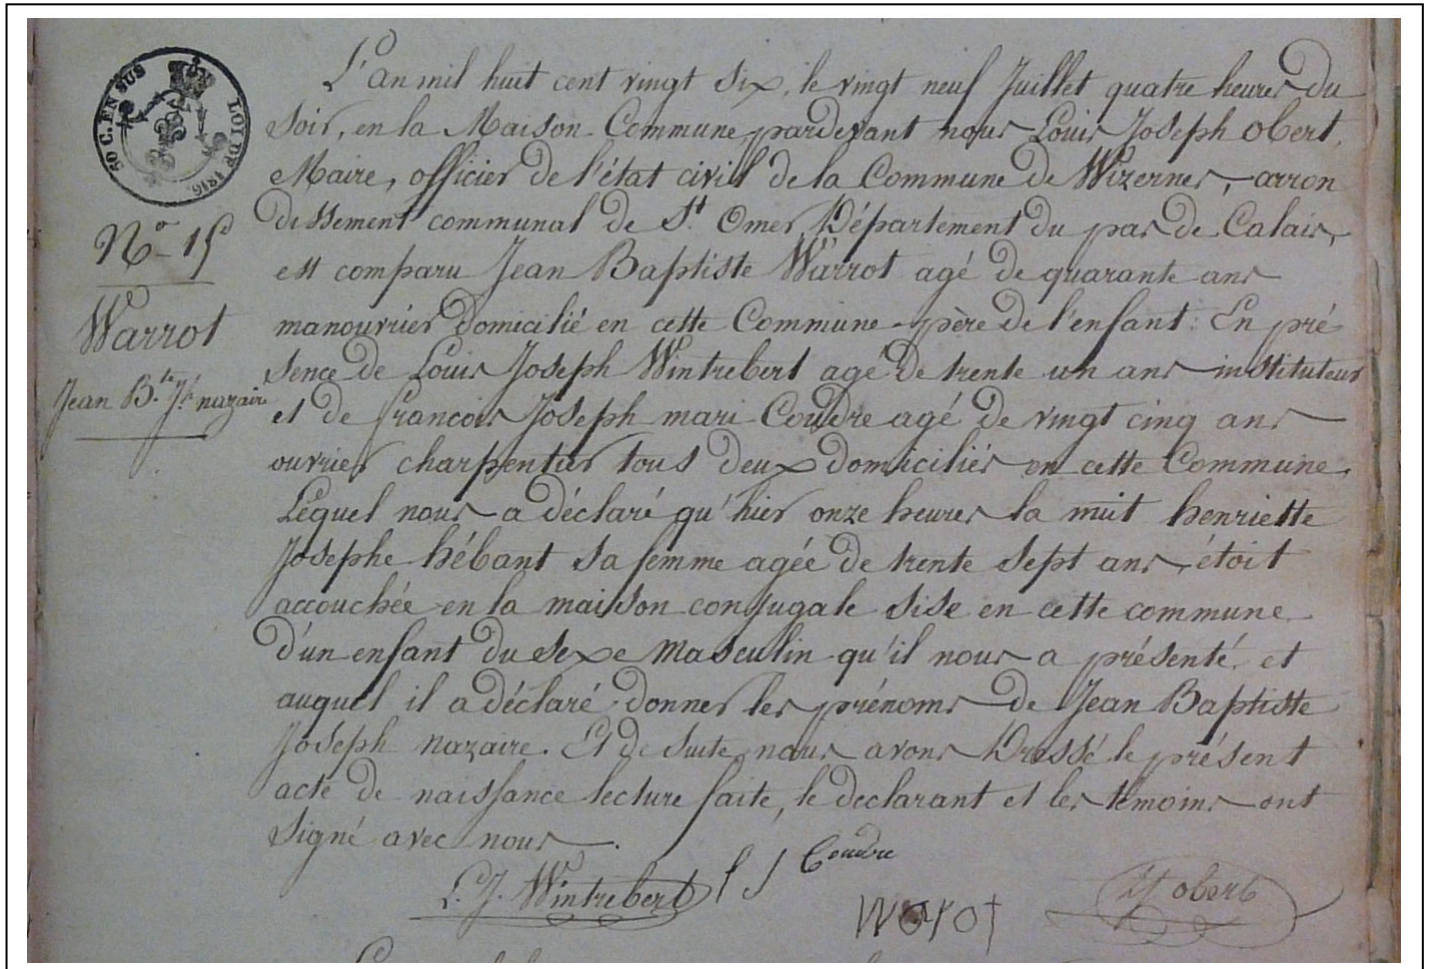 50 C. EN SUS
LOI DE 1816
L'an mil huit cent vingt six, le vingt neuf Juillet quatre heures du
soir, en la Maison Commune, pardevant nous Louis Joseph obert,
Maire, officier de l'état civil de la Commune de Wizernes, arron
dissement communal de St. Omer, Département du pas de Calais,
est comparu Jean Baptiste Warrot agé de quarante ans
manouvrier domicilié en cette Commune père de l'enfant : En pré
sence de Louis Joseph Wintrebert agé de trente un ans instituteur
et de francois Joseph mari Coudre agé de vingt cinq ans
ouvrier charpentier tous deux domiciliés en cette Commune,
Lequel nous a déclaré qu'hier onze heures la nuit henriette
Josephe hébant sa femme agée de trente sept ans, étoit
accouchée en la maison conjugale sise en cette commune
d'un enfant du sexe masculin qu'il nous a présenté, et
auquel il a déclaré donner les prénoms de Jean Baptiste
Joseph nazaire. Et de suite nous avons dressé le présent
acte de naissance lecture faite, le declarant et les témoins ont
signé avec nous.
No 15
Warrot
Jean B.te Jh. nazaire
L. J. Wintrebert
f J Coudre
Worot
obert